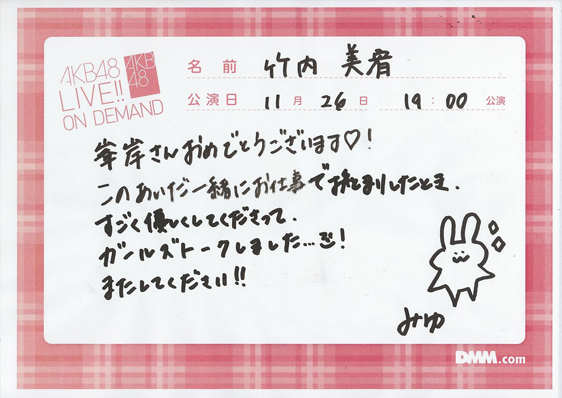 AKB48
LIVE!!
ON DEMAND
AKB
48
名前 竹内 美宥
公演日 11月 26日 19:00 公演
峯岸さんおめでとうございます♡!
このあいだ一緒にお仕事でお泊まりしたとき、
すごく優しくしてくださって、
ガールズトークしました…!
またしてください!!
みゆ
DMM.com